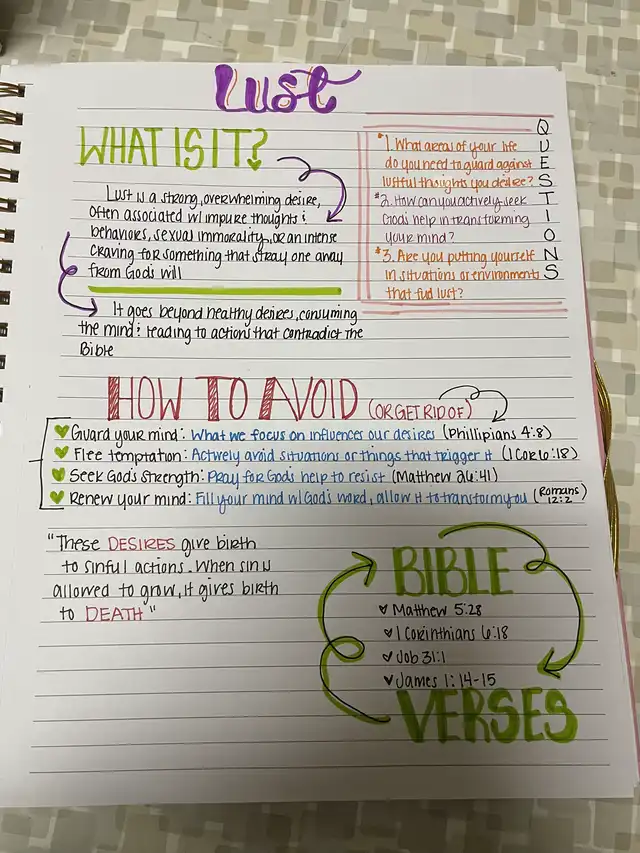 Lust
WHAT IS IT?
Lust is a strong, overwhelming desire,
Often associated w/ impure thoughts &
behaviors, sexual immorality, or an intense
craving for something that stray one away
from Gods will
It goes beyond healthy desires, consuming
the mind & leading to actions that contradict the
Bible
QUESTIONS
*1. What areas of your life
do you need to guard against
lustful thoughts you desire?
*2. How can you actively seek
Gods help in transforming
your mind?
*3. Are you putting yourself
in situations or environments
that fuel lust?
HOW TO AVOID (OR GET RID OF)
Guard your mind: What we focus on influences our desires (Phillipians 4:8)
Flee temptation: Actively avoid situations or things that trigger it (1 Cor 6:18)
Seek God's strength: Pray for God's help to resist (Matthew 26:41)
Renew your mind: Fill your mind w/ God's word, allow it to transform you (Romans
12:2)
"These DESIRES give birth
to sinful actions. When sin is
allowed to grow, it gives birth
to DEATH"
BIBLE
Matthew 5:28
1 Corinthians 6:18
Job 31:1
James 1:14-15
VERSES